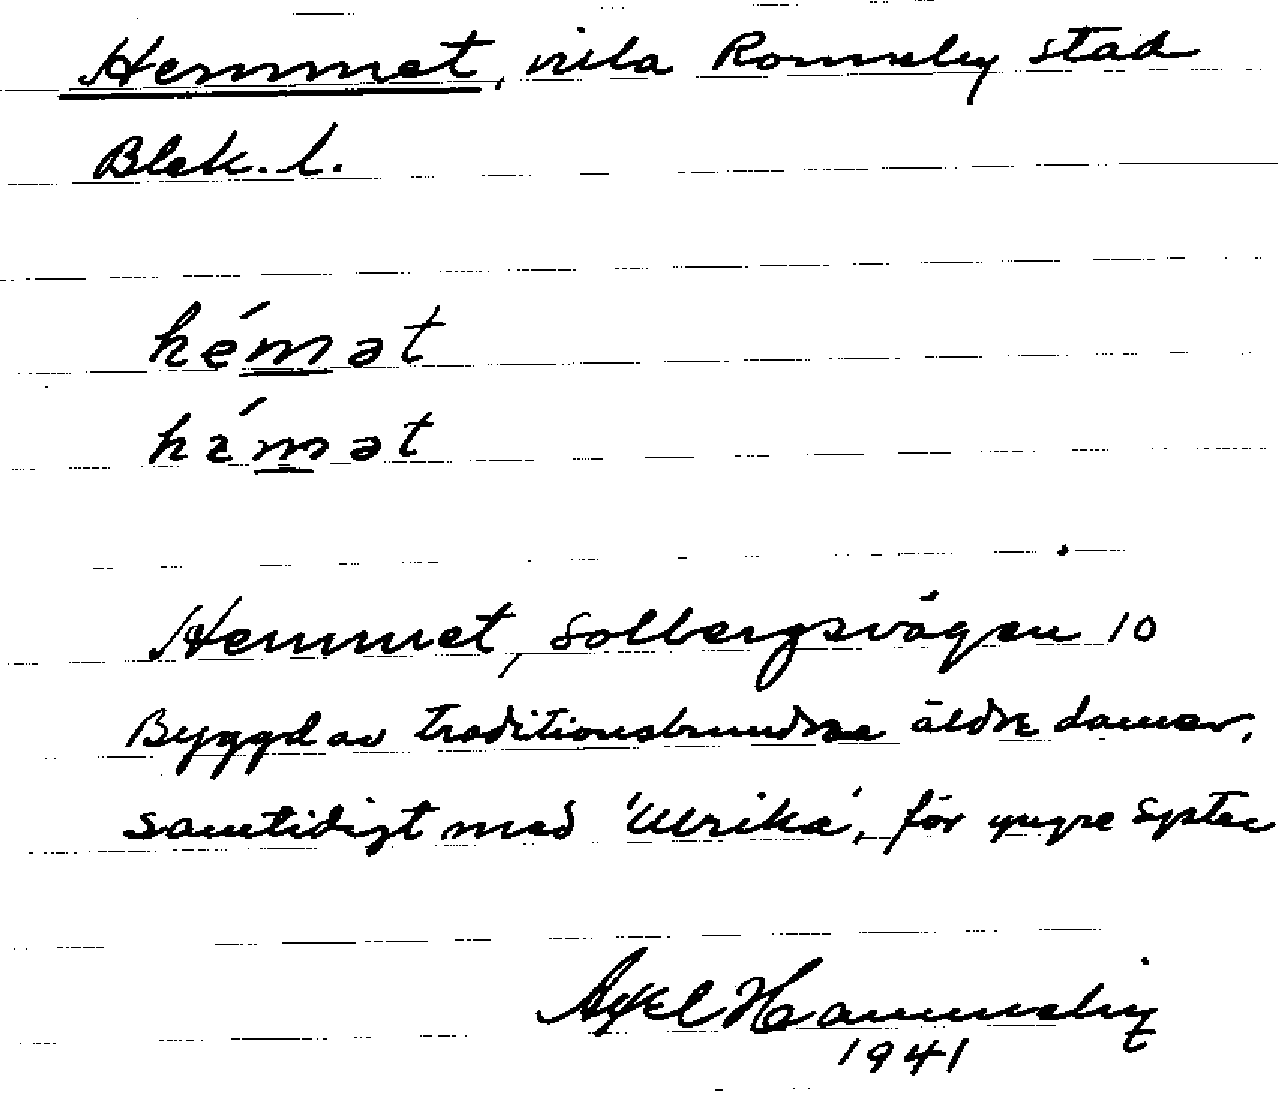 Hemmet, villa Ronneby stad
Blek. l.
hémət
hǽmət
Hemmet, Solbergsvägen 10
Byggd av traditionsbundna äldre damer,
samtidigt med 'Ulrika', för yngre syster
Axel
1941